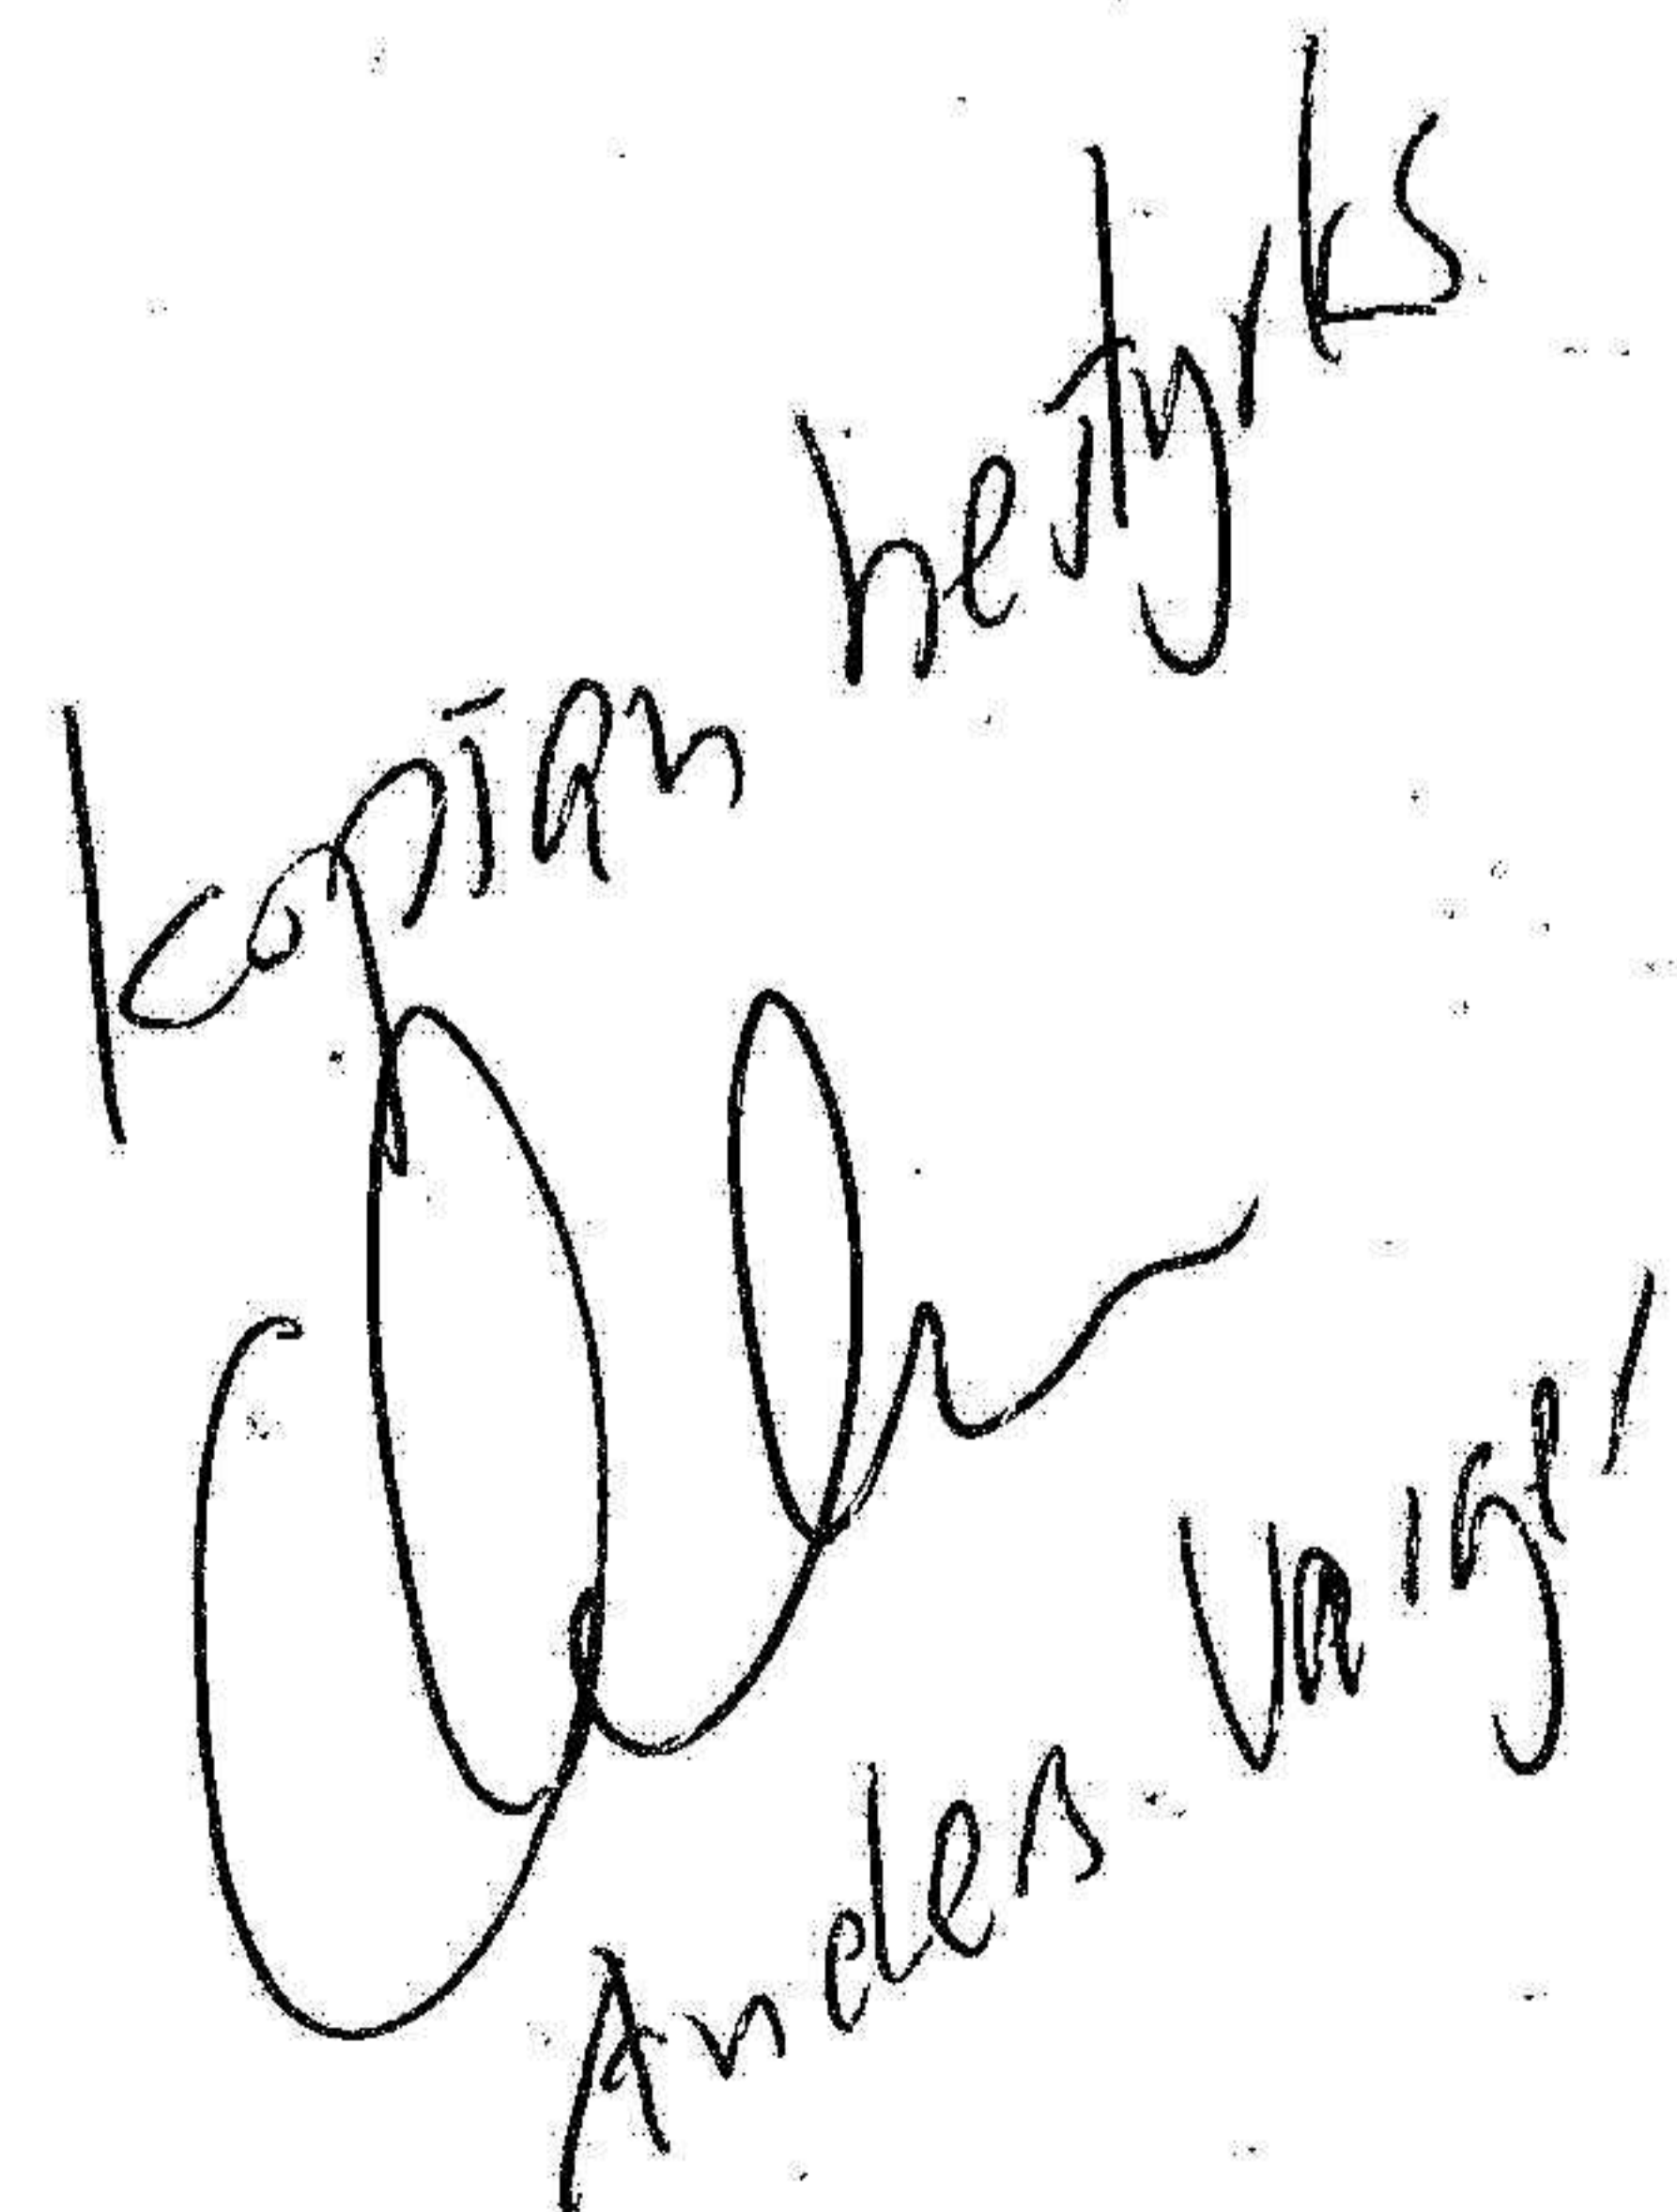 kopian bestyrks
Anders